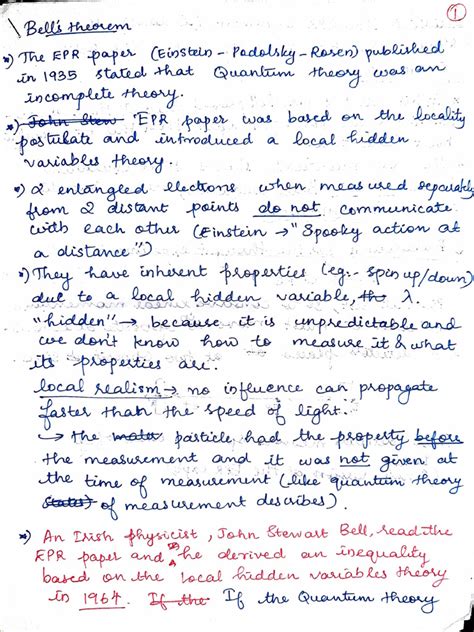 1
Bell's theorem
*) The EPR paper (Einstein - Padolsky - Rosen) published
in 1935 stated that Quantum theory was an
incomplete theory.
*) John Stew EPR paper was based on the locality
postulate and introduced a local hidden
variables theory.
*) 2 entangled electrons when measured separately
from 2 distant points do not communicate
with each other (Einstein → "Spooky action at
a distance")
*) They have inherent properties (eg:- spin up/down)
due to a local hidden variable, the λ.
"hidden" → because it is unpredictable and
we don't know how to measure it & what
its properties are.
local realism → no influence can propagate
faster than the speed of light.
→ the particle had the property before
the measurement and it was not given at
the time of measurement (like quantum theory
states) of measurement describes).
*) An Irish physicist, John Stewart Bell, read the
EPR paper and he derived an inequality
based on the local hidden variables theory
in 1964. If the If the Quantum theory